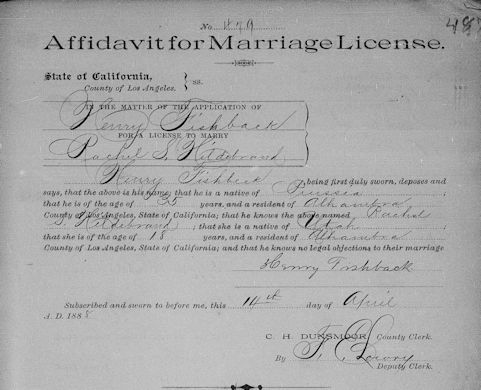 No. 879
487
Affidavit for Marriage License.
State of California,
County of Los Angeles. } ss.
IN THE MATTER OF THE APPLICATION OF
Henry Fishback
FOR A LICENSE TO MARRY
Rachel S. Hildebrand
Henry Fishback being first duly sworn, deposes and
says, that the above is his name; that he is a native of
that he is of the age of 35 years, and a resident of Alhambra
County of Los Angeles, State of California; that he knows the above named Rachel
S. Hildebrand; that she is a native of Utah
that she is of the age of 18 years, and a resident of Alhambra
County of Los Angeles, State of California; and that he knows no legal objections to their marriage
Henry Fishback
Subscribed and sworn to before me, this 14th day of April
A. D. 1888
C. H. DUNSMOOR, County Clerk.
By F. E. Lowry
Deputy Clerk.